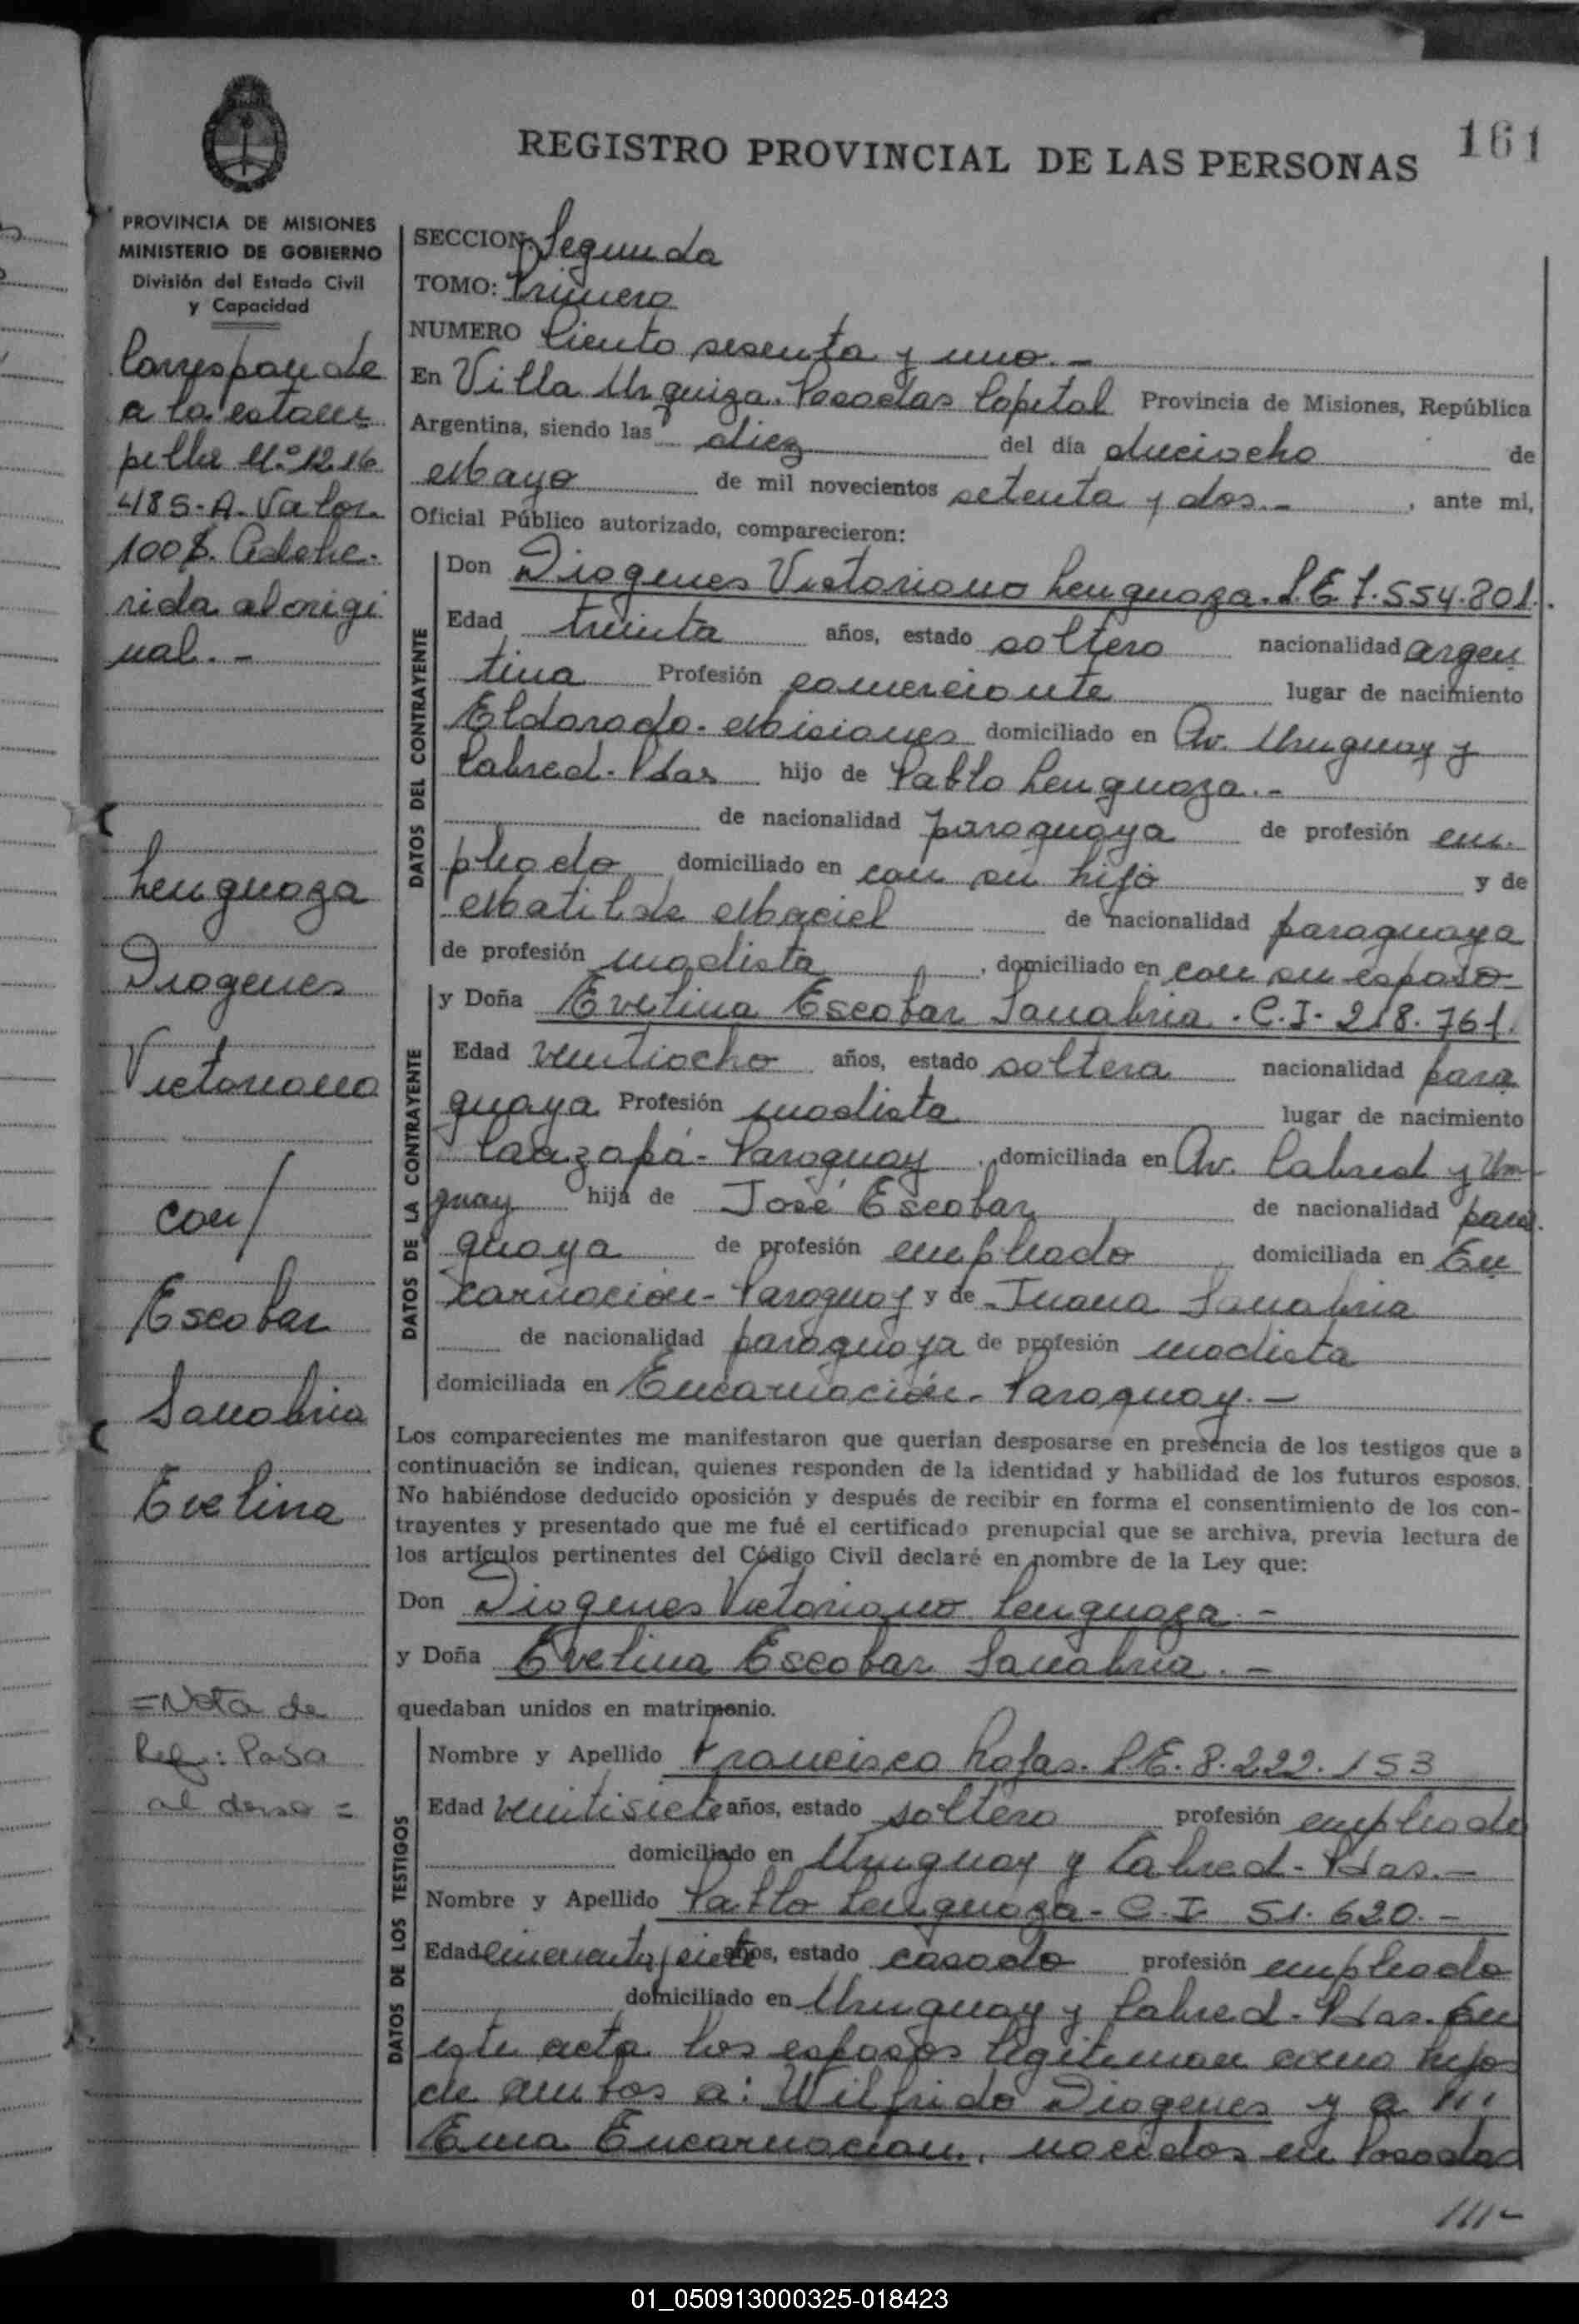 161
REGISTRO PROVINCIAL DE LAS PERSONAS
PROVINCIA DE MISIONES
MINISTERIO DE GOBIERNO
División del Estado Civil
y Capacidad
Corresponde
a la estam
pilla N.° 1216
485-A. Valor
100 $. Adhe-
rida al origi
nal. -
Lenguaza
Diogenes
Victoriano
con/
Escobar
Sanabria
Evelina
= Nota de
Ref: Pasa
al dorso =
SECCION: Segunda
TOMO: Primero
NUMERO Ciento sesenta y uno. -
En Villa Urquiza. Posadas Capital Provincia de Misiones, República
Argentina, siendo las diez del día dieciocho de
Mayo de mil novecientos setenta y dos. - , ante mi,
Oficial Público autorizado, comparecieron:
DATOS DEL CONTRAYENTE
Don Diogenes Victoriano Lenguaza. L.E 7.554.801.
Edad treinta años, estado soltero nacionalidad argen
tina Profesión comerciante lugar de nacimiento
Eldorado - Misiones domiciliado en Av. Uruguay y
Cabred - Pdas hijo de Pablo Lenguaza. -
de nacionalidad paraguaya de profesión em-
pleado domiciliado en con su hijo y de
Matilde Maciel de nacionalidad paraguaya
de profesión modista , domiciliado en con su esposo
DATOS DE LA CONTRAYENTE
y Doña Evelina Escobar Sanabria. C.I. 218.761.
Edad veintiocho años, estado soltera nacionalidad para
guaya Profesión modista lugar de nacimiento
Caazapá - Paraguay , domiciliada en Av. Cabred y Uru-
guay hija de José Escobar de nacionalidad para
guaya de profesión empleado domiciliada en En
carnación - Paraguay y de Juana Sanabria
de nacionalidad paraguaya de profesión modista
domiciliada en Encarnación - Paraguay. -
Los comparecientes me manifestaron que querían desposarse en presencia de los testigos que a
continuación se indican, quienes responden de la identidad y habilidad de los futuros esposos.
No habiéndose deducido oposición y después de recibir en forma el consentimiento de los con-
trayentes y presentado que me fué el certificado prenupcial que se archiva, previa lectura de
los artículos pertinentes del Código Civil declaré en nombre de la Ley que:
Don Diogenes Victoriano Lenguaza. -
y Doña Evelina Escobar Sanabria. -
quedaban unidos en matrimonio.
DATOS DE LOS TESTIGOS
Nombre y Apellido Francisco Rojas. L.E. 8.222.153
Edad veintisiete años, estado soltero profesión empleado
domiciliado en Uruguay y Cabred - Pdas. -
Nombre y Apellido Pablo Lenguaza - C.I. 51.620. -
Edad cincuenta y siete años, estado casado profesión empleado
domiciliado en Uruguay y Cabred - Pdas. En
este acto los esposos legitiman como hijos
de ambos a: Wilfrido Diogenes y a ///
Ema Encarnacion, nacidos en Posadas
///-
01_050913000325-018423